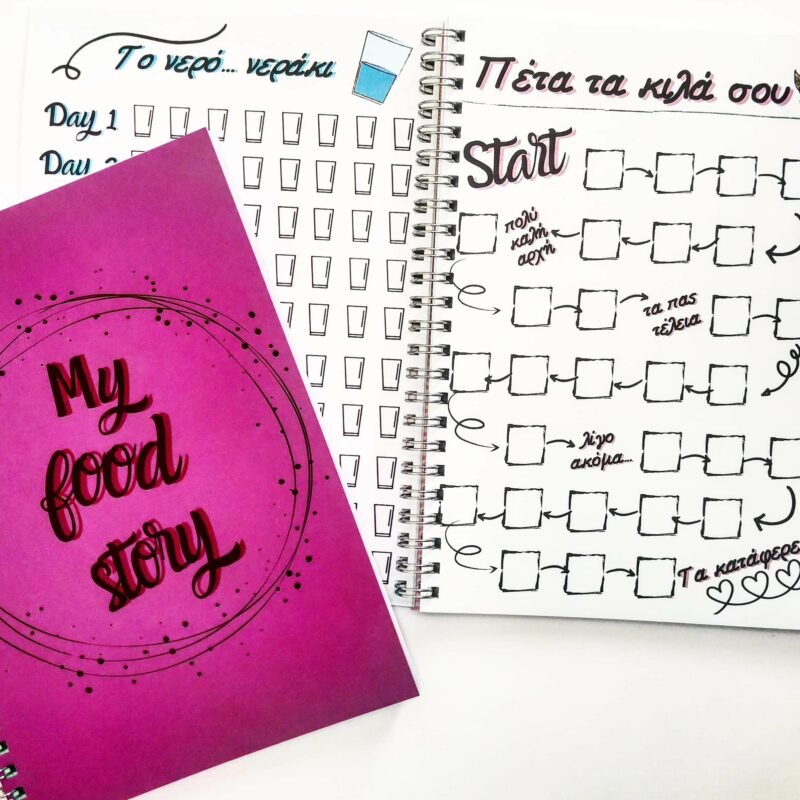 Το νερό... νεράκι
Day 1
Day
My
food
story
Πέτα τα κιλά σου
Start
πολύ
καλή
αρχή
τα πας
τέλεια
λίγο
ακόμα...
Τα κατάφερε